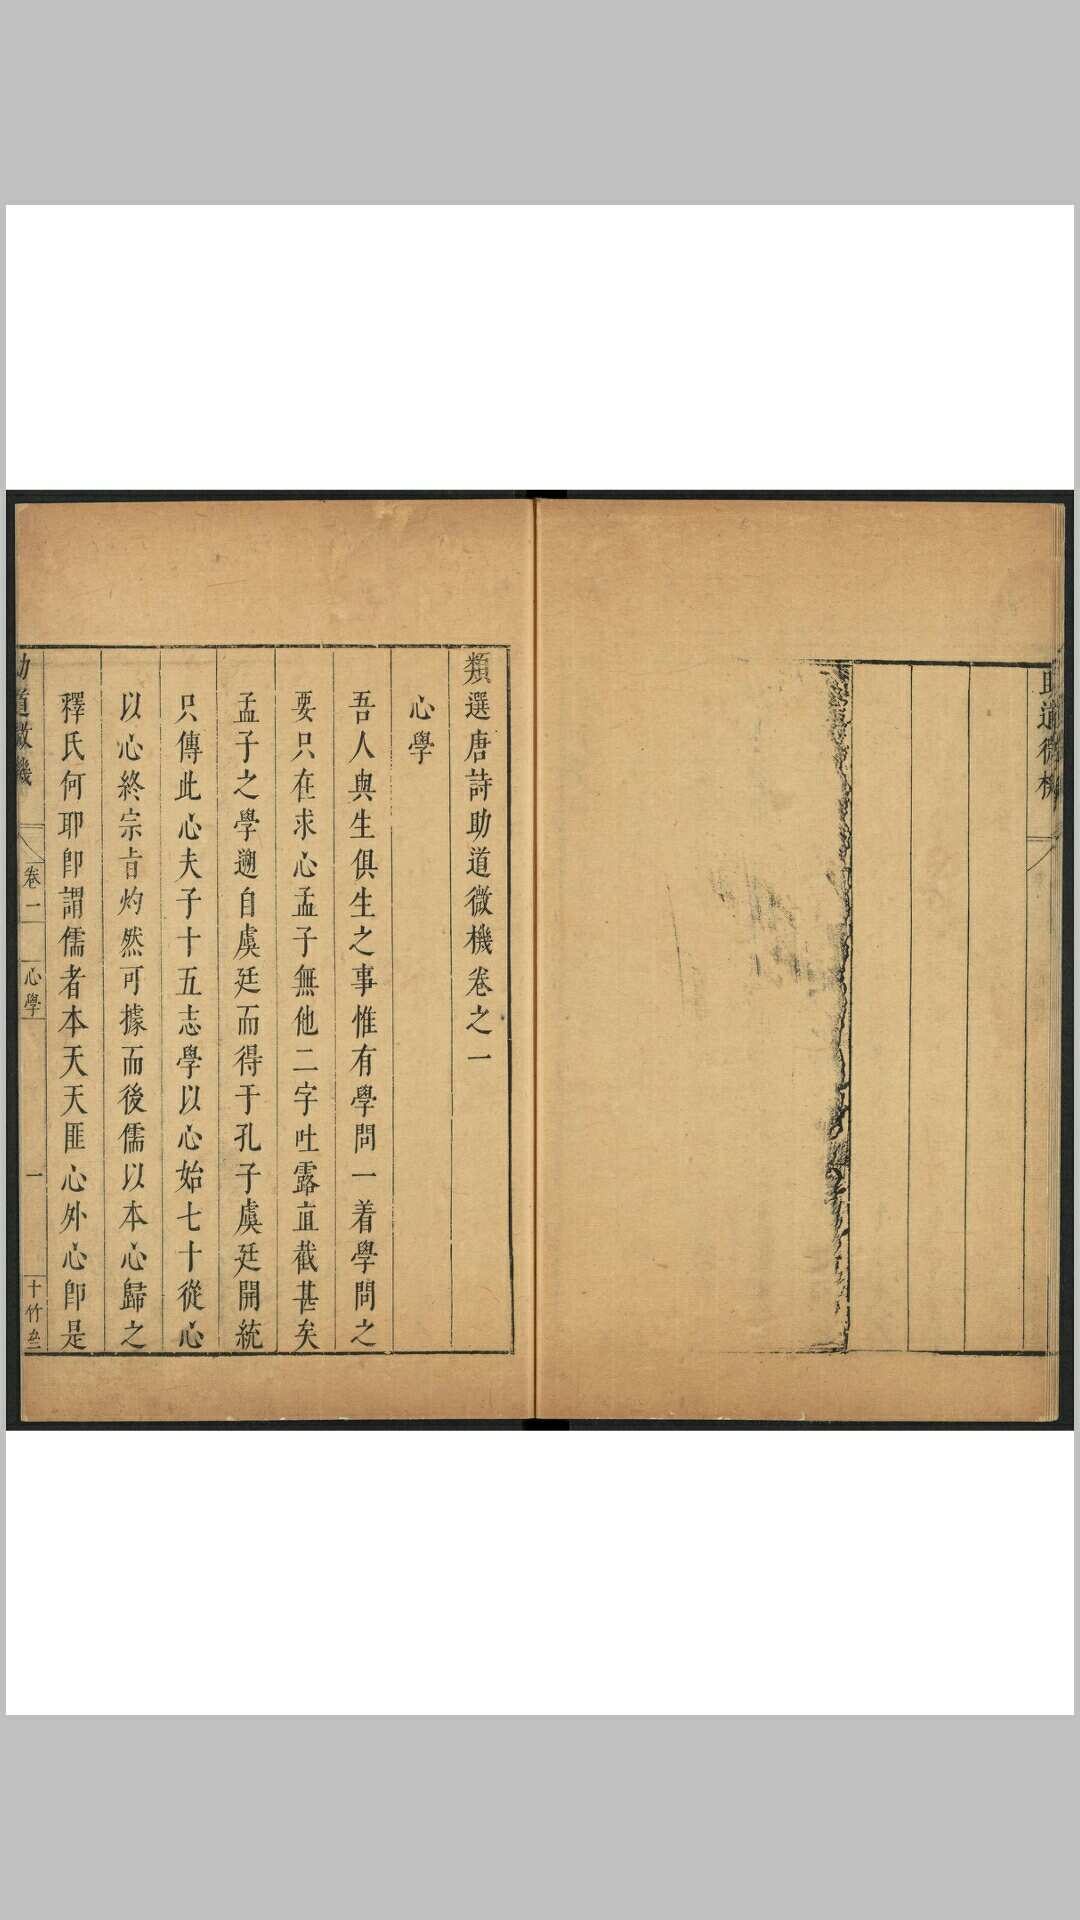 助道微機
類選唐詩助道微機卷之一
心學
吾人與生俱生之事惟有學問一着學問之
要只在求心孟子無他二字吐露直截甚矣
孟子之學遡自虞廷而得于孔子虞廷開統
只傳此心夫子十五志學以心始七十從心
以心終宗㫖灼然可據而後儒以本心歸之
釋氏何耶卽謂儒者本天天匪心外心卽是
助道微機
卷一
心學
一
十竹